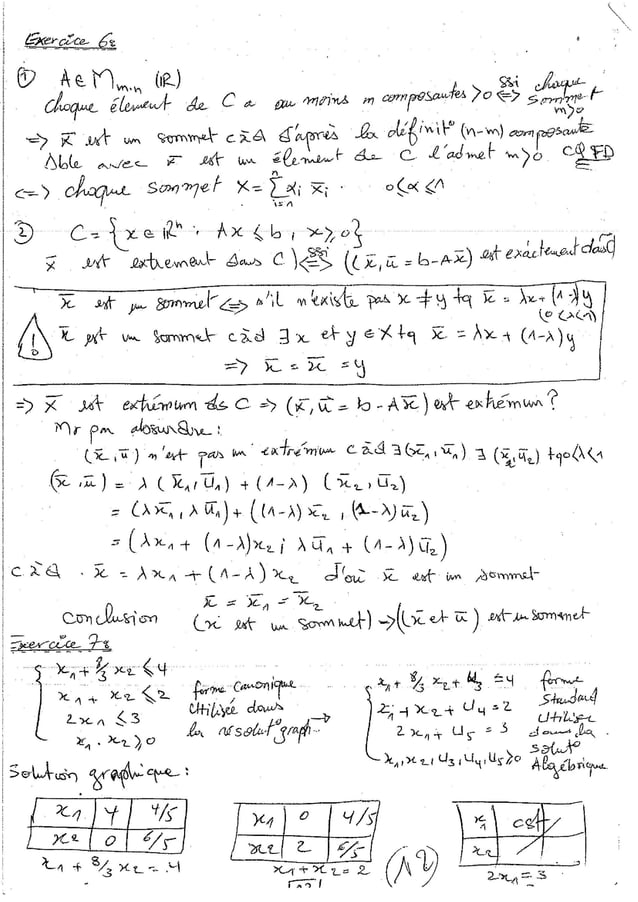 Exercice 6:
① A ∈ M m.n (IR)
chaque élément de C a au moins m composantes >0 ssi <=> chaque sommet m>0
=> x̄ est un sommet càd d'après la définit° (n-m) composante
avec x̄ est un élément de C l'admet m>0 CQFD
<=> chaque sommet X = Σ αi x̄i . 0≤α≤1
② C = {x ∈ IRⁿ : Ax ≤ b, x ≥ 0}
x̄ est extrement dans C) <=> ssi ((x̄, ū = b - Ax̄) est exactement
x̄ est un sommet <=> s'il n'existe pas x ≠ y tq x̄ = λx + (1-λ)y
(0<λ<1)
x̄ est un sommet càd ∃ x et y ∈ X tq x̄ = λx + (1-λ)y
=> x̄ = x̄ = y
=> x̄ est extrémum ds C => (x̄, ū = b - Ax̄) est extrémum ?
Mr par absurdre :
(x̄, ū) n'est pas un extrémum càd ∃ (x̄1, ū1) ∃ (x̄2, ū2) tq 0<λ<1
(x̄, ū) = λ (x̄1, ū1) + (1-λ) (x̄2, ū2)
= (λx̄1, λū1) + ((1-λ) x̄2, (1-λ) ū2)
= (λx1 + (1-λ)x2 ; λū1 + (1-λ) ū2)
càd . x̄ = λx1 + (1-λ) x2 d'où x̄ est un sommet
x̄ = x̄1 = x̄2
conclusion (x est un sommet) -> ((x̄ et ū) est un sommet
Exercice 7:
x1 + 8/3 x2 ≤ 4
x1 + x2 ≤ 2
2x1 ≤ 3
x1 . x2 ≥ 0
forme canonique
Utilisée dans
la résolut° graph.. ->
x1 + 8/3 x2 + U3 = 4
x1 + x2 + U4 = 2
2x1 + U5 = 3
x1, x2, U3, U4, U5 ≥ 0
forme
Standard
Utiliser
dans la
solut°
Algébrique
Solution graphique :
x1 4 4/5
x2 0 6/5
x1 + 8/3 x2 = 4
x1 0 4/5
x2 2 6/5
x1 + x2 = 2
(12)
x1 cst
x2
2x1 = 3